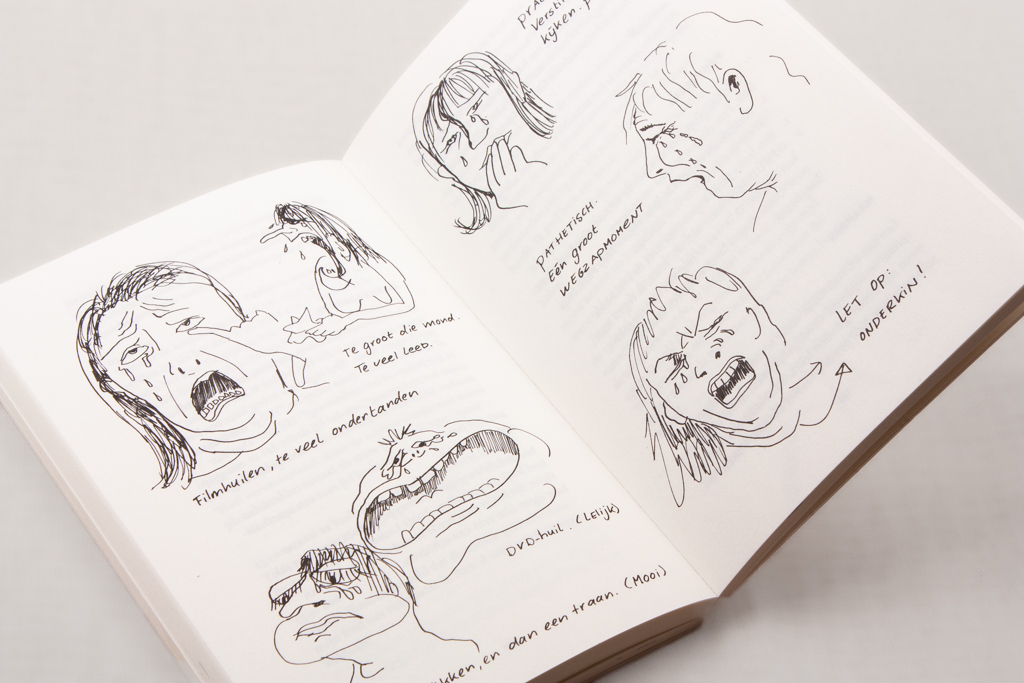 Te groot die mond.
Te veel leed.
Filmhuilen, te veel ondertanden
DVD-huil. (LELijK)
en dan een traan. (Mooi)
kijken.
PATHETISCH.
Eén groot
WEGZAPMOMENT
LET OP:
ONDERKIN!